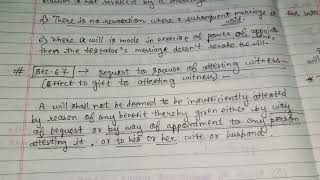 Muslim is not revoked by a
d) There is no revocation where a subsequent marriage is
void.
e) Where a will is made in exercise of power of appoint
then the testator's marriage doesn't revoke the will.
# Sec 67 → Bequest to Spouse of attesting witness
(Effect to gift to attesting witness)
A will shall not be deemed to be insufficiently attested
by reason of any benefit thereby given either by way
of bequest or by way of appointment to any person
attesting it, or to his or her wife or husband.